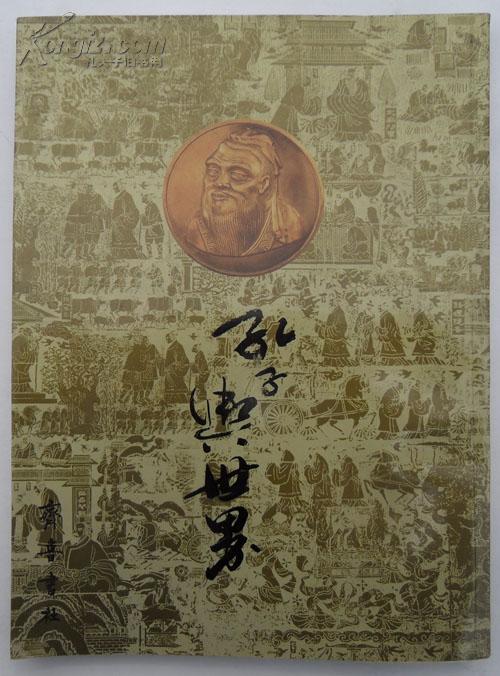 Kongfz.com
孔夫子旧书网
孔子與世界
齊魯書社